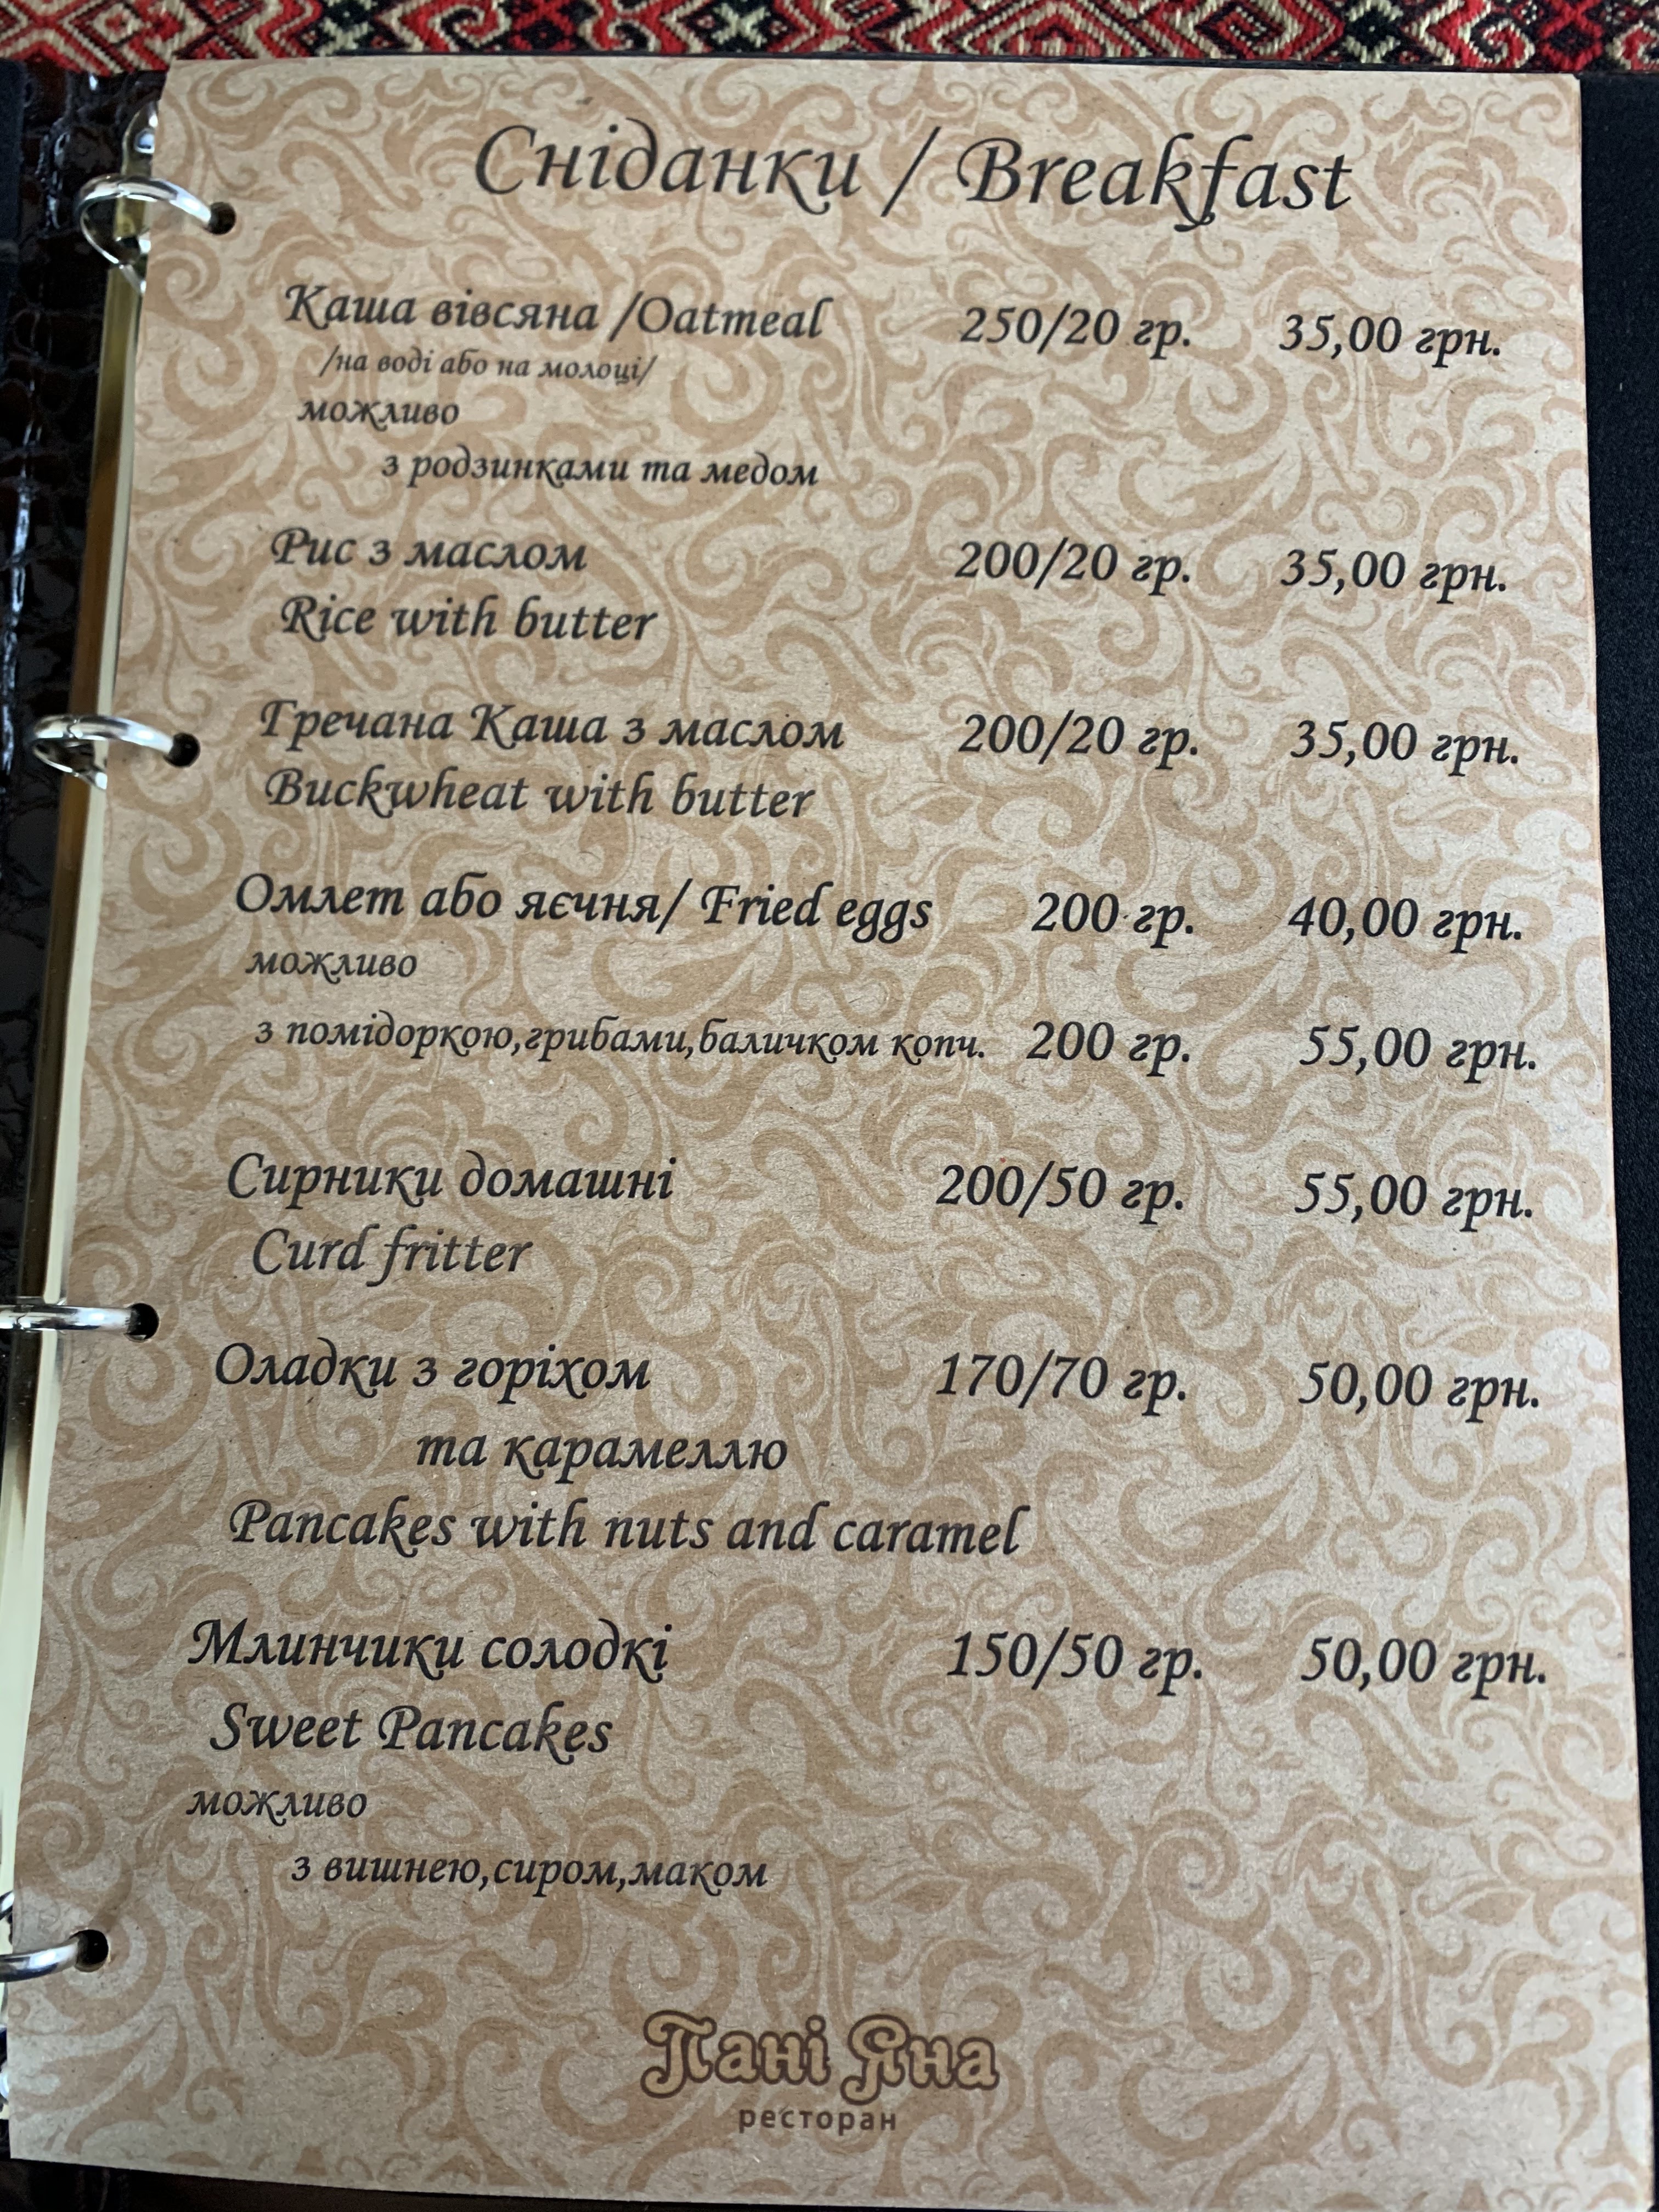 Сніданки / Breakfast
Каша вівсяна /Oatmeal 250/20 гр. 35,00 грн.
/на воді або на молоці/
можливо
з родзинками та медом
Рис з маслом 200/20 гр. 35,00 грн.
Rice with butter
Гречана Каша з маслом 200/20 гр. 35,00 грн.
Buckwheat with butter
Омлет або яєчня/ Fried eggs 200 гр. 40,00 грн.
можливо
з помідоркою,грибами,баличком копч. 200 гр. 55,00 грн.
Сирники домашні 200/50 гр. 55,00 грн.
Curd fritter
Оладки з горіхом 170/70 гр. 50,00 грн.
та карамеллю
Pancakes with nuts and caramel
Млинчики солодкі 150/50 гр. 50,00 грн.
Sweet Pancakes
можливо
з вишнею,сиром,маком
Пані Яна
ресторан